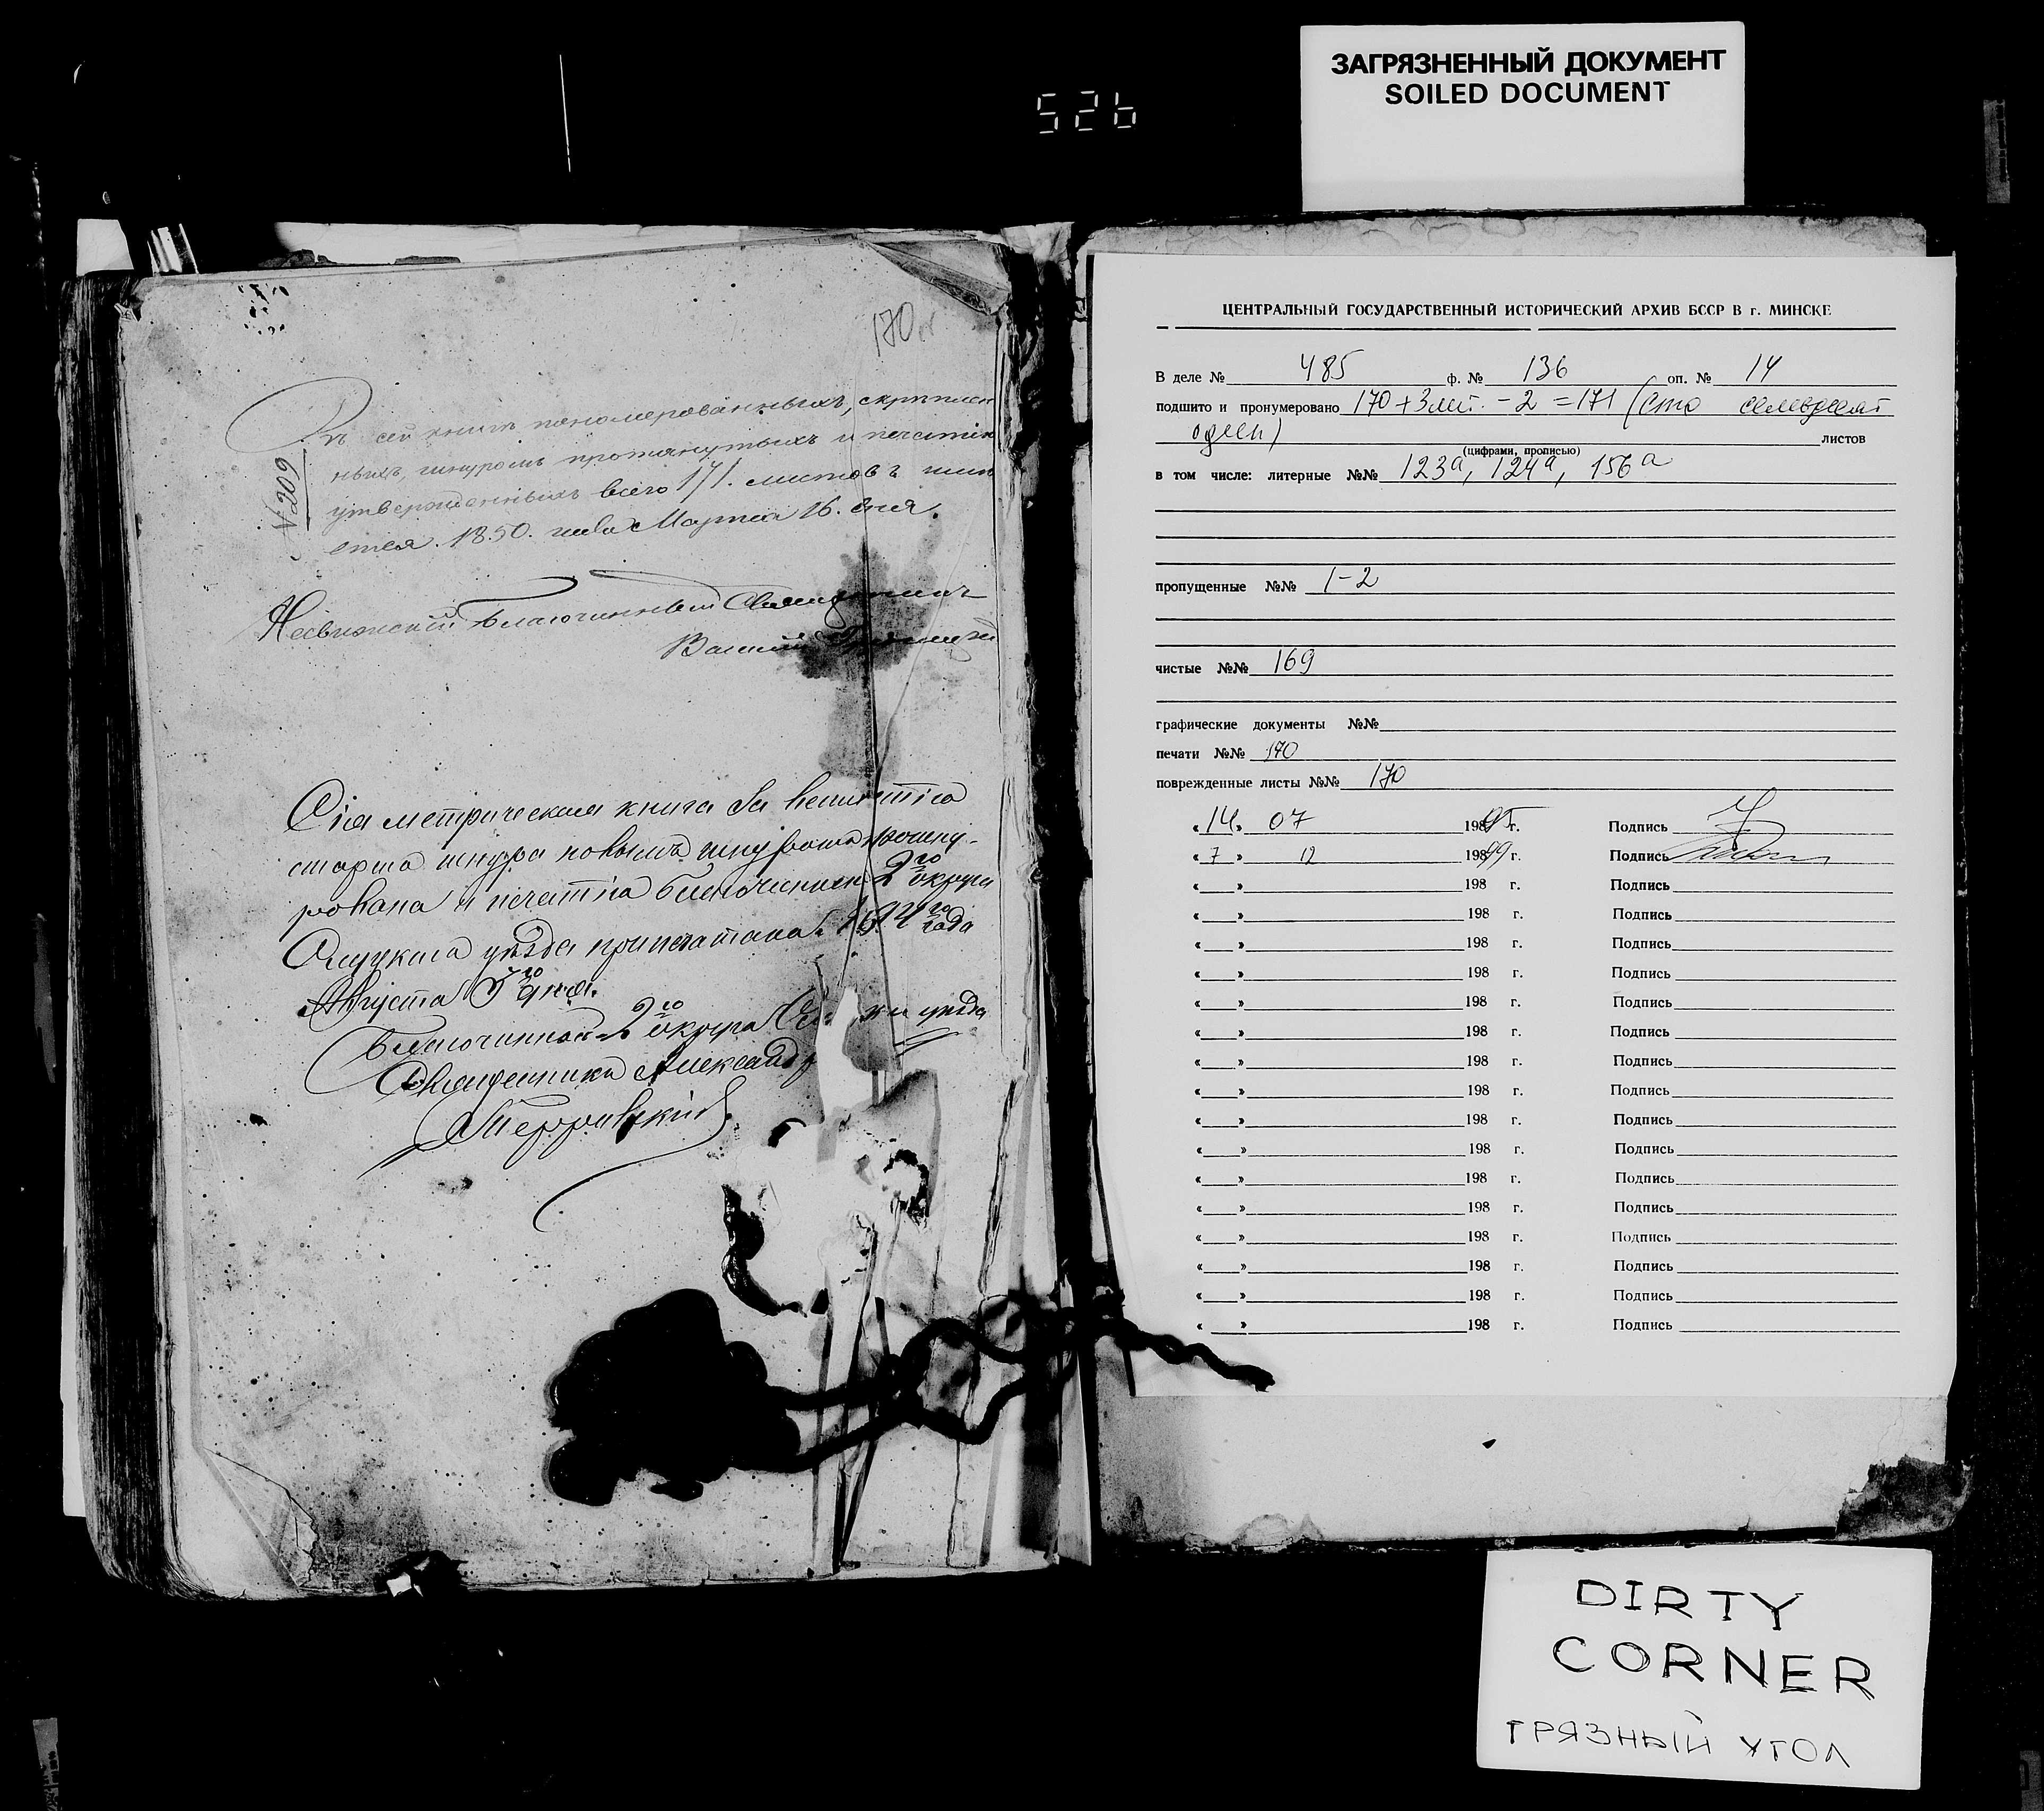 ЗАГРЯЗНЕННЫЙ ДОКУМЕНТ
SOILED DOCUMENT
526
170
№ 209
Въ сей книгѣ пономерованныхъ, скрѣплен
ныхъ, шнуромъ протянутыхъ и печатью
утвержденныхъ всего 171. листовъ
ется. 1850. года Марта 16. дня.
Несвижскій Благочинный Священникъ
Василій
Сія метрическая книга за
старта шнура новымъ шнуромъ прошну-
рована и печатію благочиннаго 2го округа
Слуцкаго уѣзда припечатана
года
Августа
дня.
Благочинный 2го округа уѣзда
Священникъ Александр
ЦЕНТРАЛЬНЫЙ ГОСУДАРСТВЕННЫЙ ИСТОРИЧЕСКИЙ АРХИВ БССР В г. МИНСКЕ
В деле № 485 ф. № 136 оп. № 14
подшито и пронумеровано 170+3лит. -2 =171 (сто семьдесят
один) листов
(цифрами, прописью)
в том числе: литерные №№ 123а, 124а, 156а
пропущенные №№ 1-2
чистые №№ 169
графические документы №№
печати №№ 170
поврежденные листы №№ 170
«14» 07 19895 г. Подпись
«7» 12 19899 г. Подпись
« » 198 г. Подпись
« » 198 г. Подпись
« » 198 г. Подпись
« » 198 г. Подпись
« » 198 г. Подпись
« » 198 г. Подпись
« » 198 г. Подпись
« » 198 г. Подпись
« » 198 г. Подпись
« » 198 г. Подпись
« » 198 г. Подпись
« » 198 г. Подпись
« » 198 г. Подпись
« » 198 г. Подпись
« » 198 г. Подпись
« » 198 г. Подпись
DIRTY
CORNER
ГРЯЗНЫЙ УГОЛ